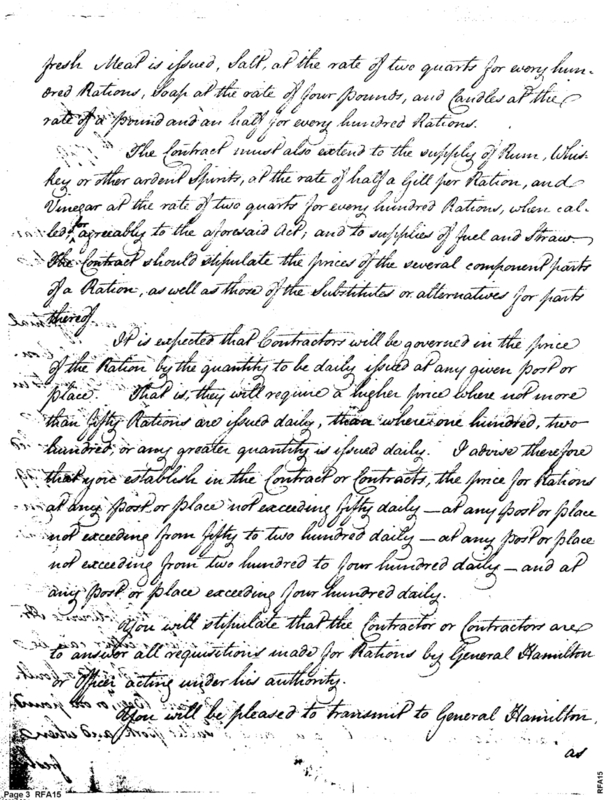 fresh Meat is issued, Salt, at the rate of two quarts for every hun-
dred Rations, Soap at the rate of four pounds, and Candles at the
rate of a pound and an half for every hundred Rations.
The Contract must also extend to the supply of Rum, Whis-
key or other ardent Spirits, at the rate of half a Gill per Ration, and
Vinegar at the rate of two quarts for every hundred Rations, when cal-
led for agreeably to the aforesaid Act; and to supplies of fuel and Straw.
The Contract should stipulate the prices of the several component parts
of a Ration, as well as those of the Substitutes or alternatives for parts
thereof
It is expected that Contractors will be governed in the price
of the Ration by the quantity to be daily issued at any given post or
place. That is, they will require a higher price where not more
than fifty Rations are issued daily, than where one hundred, two
hundred, or any greater quantity is issued daily. I advise therefore
that you establish in the Contract or Contracts, the price for Rations
at any post or place not exceeding fifty daily — at any post or place
not exceeding from fifty to two hundred daily — at any post or place
not exceeding from two hundred to four hundred daily — and at
any post or place exceeding four hundred daily.
You will stipulate that the Contractor or Contractors are
to answer all requisitions made for Rations by General Hamilton
or Officer acting under his authority.
You will be pleased to transmit to General Hamilton,
as
Page 3 RFA15
RFA15